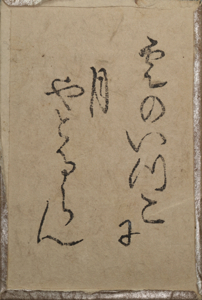 雲のいつこ
に
月
やとるらん